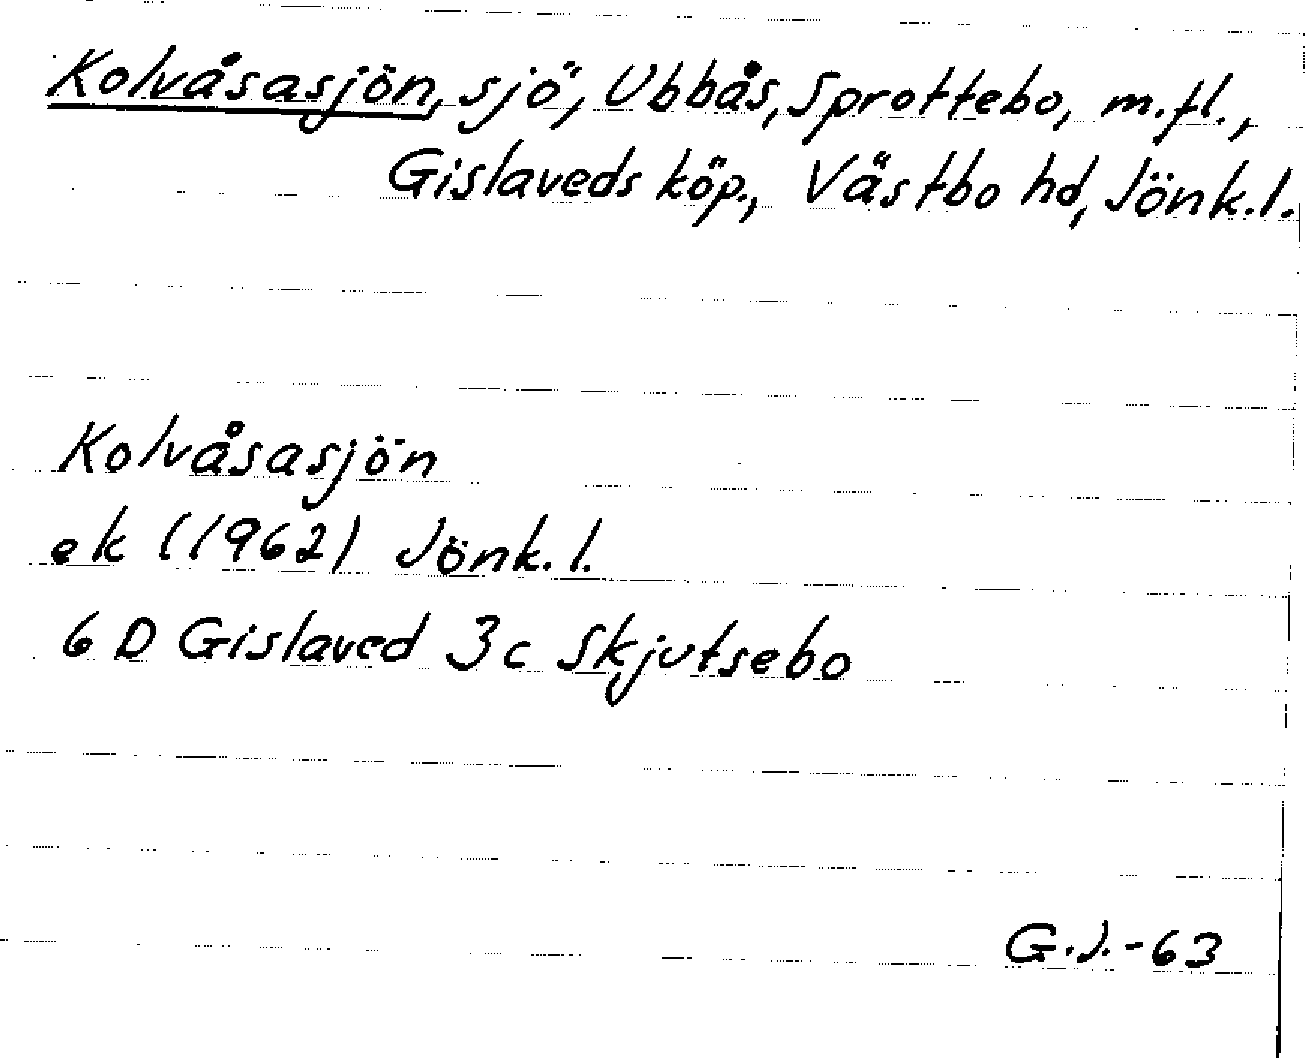 Kolvåsasjön, sjö, Ubbås, Sprottebo, m.fl.,
Gislaveds köp., Västbo hd, Jönk.l.
Kolvåsasjön
ek (1962) Jönk.l.
6 D Gislaved 3c Skjutsebo
G.J.-63